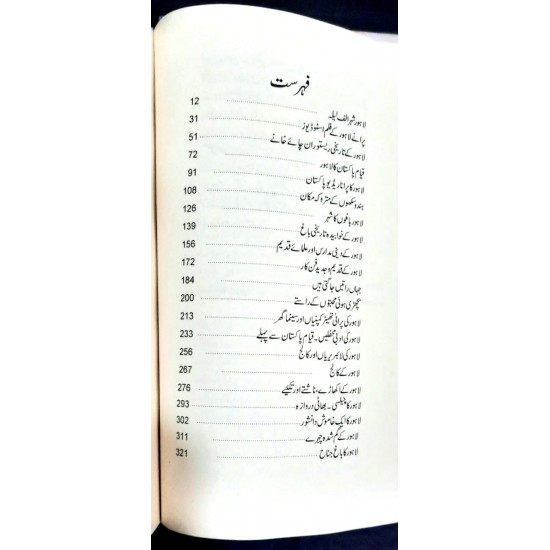 فہرست
لاہور شہر الف لیلہ 12
پرانے لاہور کے فلم اسٹوڈیوز 31
لاہور کے تاریخی ریستوران چائے خانے 51
قیام پاکستان کا لاہور 72
لاہور کا پرانا ریڈیو پاکستان 91
ہندو سکھوں کے متروکہ مکان 108
لاہور باغوں کا شہر 126
لاہور کے خوابیدہ تاریخی باغ 139
لاہور کے دینی مدارس اور علمائے قدیم 156
لاہور کے قدیم و جدید فن کار 172
جہاں راتیں جاگتی ہیں 184
بچھڑی ہوئی محبتوں کے راستے 200
لاہور کی پرانی تھیٹر کمپنیاں اور سینما گھر 213
لاہور کی ادبی محفلیں۔ قیام پاکستان سے پہلے 233
لاہور کی لائبریریاں اور کالج 256
لاہور کے کالج 267
لاہور کے اکھاڑے، ناشتے اور تکیے 276
لاہور کا چیلسی۔ بھاٹی دروازہ 293
لاہور کا ایک خاموش دانشور 302
لاہور کے گم شدہ چہرے 311
لاہور کا باغ جناح 321